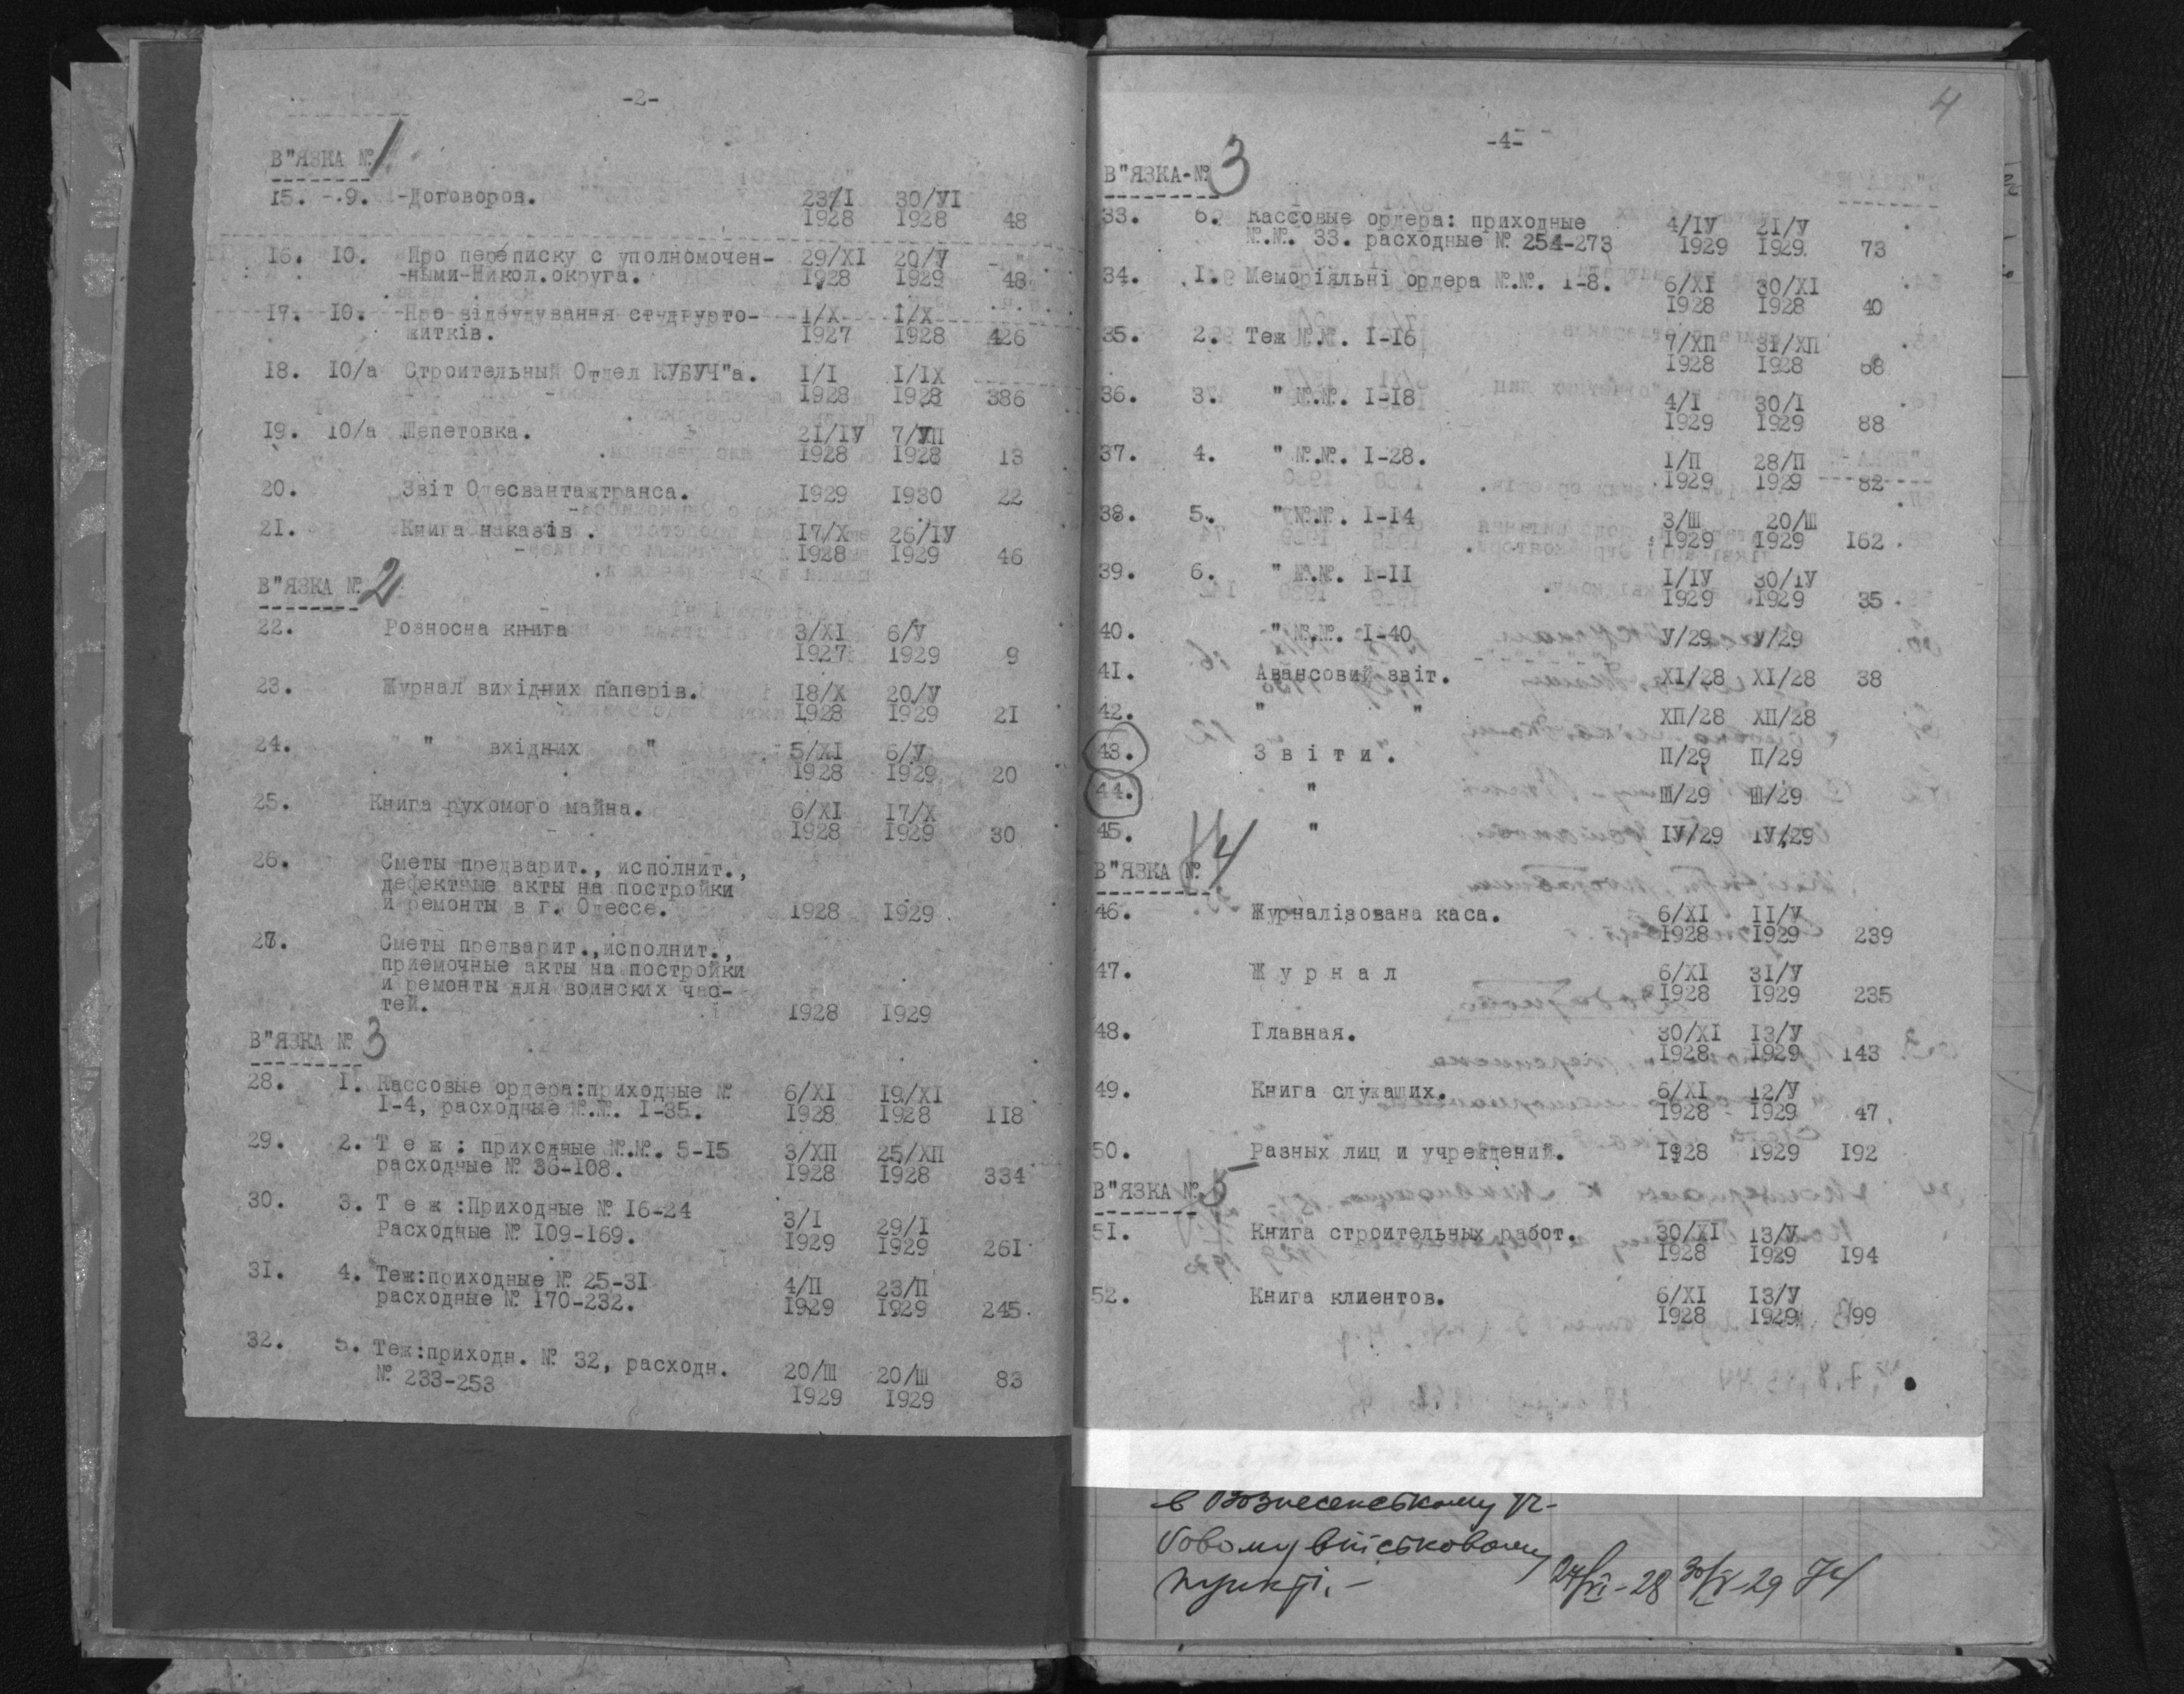 -2-
В"ЯЗКА № 1
15. -.9. -Договоров. 23/I 30/УI
1928 1928 48
16. 10. Про переписку с уполномочен- 29/XI 20/У
-ными-Никол.округа. 1928 1929 48
17. 10. -Про відбудування студгурто- 1/X 1/X
житків. 1927 1928 426
18. 10/а Строительный Отдел КУБУЧ"а. I/I I/IX
1928 1928 386
19. 10/а Шепетовка. 21/IУ 7/УП
1928 1928 13
20. Звіт Одесвантажтранса. 1929 1930 22
21. Книга наказів. 17/X 26/IУ
1928 1929 46
В"ЯЗКА № 2
22. Розносна книга 3/XI 6/У
1927 1929 9
23. Журнал вихідних паперів. 18/X 20/У
1928 1929 21
24. " " вхідних " 5/XI 6/У
1928 1929 20
25. Книга рухомого майна. 6/XI 17/X
1928 1929 30
26. Сметы предварит., исполнит.,
дефектные акты на постройки
и ремонты в г. Одессе. 1928 1929
27. Сметы предварит.,исполнит.,
приемочные акты на постройки
и ремонты для воинских час-
тей. 1928 1929
В"ЯЗКА № 3
28. 1. Кассовые ордера:приходные № 6/XI 19/XI
1-4, расходные №.№. 1-35. 1928 1928 118
29. 2. Т е ж : приходные №.№. 5-15 3/ХП 25/ХП
расходные № 36-108. 1928 1928 334
30. 3. Т е ж :Приходные № 16-24 3/I 29/I
Расходные № 109-169. 1929 1929 261
31. 4. Теж:приходные № 25-31 4/П 23/П
расходные № 170-232. 1929 1929 245
32. 5. Теж:приходн. № 32, расходн. 20/Ш 20/Ш 83
№ 233-253 1929 1929
4
-4-
В"ЯЗКА-№ 3
33. 6. Кассовые ордера: приходные 4/IУ 21/У
№.№. 33. расходные № 254-273 1929 1929 73
34. 1. Меморіяльні ордера №.№. 1-8. 6/XI 30/XI
1928 1928 40
35. 2. Теж №.№. 1-16 7/ХП 31/ХП
1928 1928 68
36. 3. " №.№. 1-18 4/I 30/I
1929 1929 88
37. 4. " №.№. 1-28. 1/П 28/П
1929 1929 82
38. 5. " №.№. 1-14 3/Ш 20/Ш
1929 1929 162
39. 6. " №.№. 1-11 1/IУ 30/IУ
1929 1929 35
40. " №.№. 1-40 У/29 У/29
41. Авансовий звіт. XI/28 XI/28 38
42. " " ХП/28 ХП/28
43. З в і т и . П/29 П/29
44. " Ш/29 Ш/29
45. " IУ/29 IУ/29
В"ЯЗКА № 4
46. Журналізована каса. 6/XI 11/У
1928 1929 239
47. Ж у р н а л 6/XI 31/У
1928 1929 235
48. Главная. 30/XI 13/У
1928 1929 143
49. Книга служащих. 6/XI 12/У
1928 1929 47
50. Разных лиц и учреждений. 1928 1929 192
В"ЯЗКА № 5
51. Книга строительных работ. 30/XI 13/У
1928 1929 194
52. Книга клиентов. 6/XI 13/У
1928 1929 199
в Вознесенському
бовому військовому
пункті. - 24/VI-28 30/IV-29 74